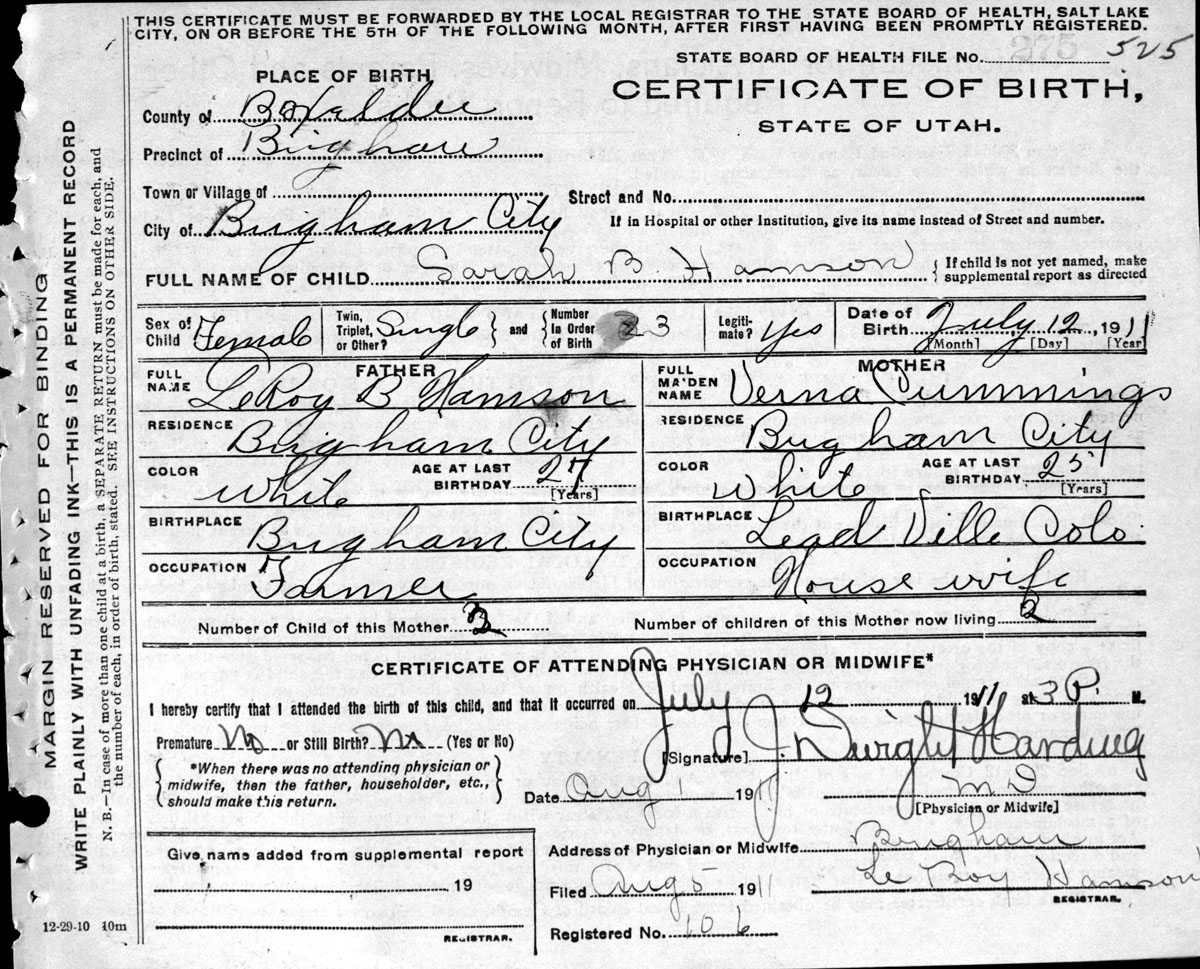 THIS CERTIFICATE MUST BE FORWARDED BY THE LOCAL REGISTRAR TO THE STATE BOARD OF HEALTH, SALT LAKE
CITY, ON OR BEFORE THE 5TH OF THE FOLLOWING MONTH, AFTER FIRST HAVING BEEN PROMPTLY REGISTERED.
STATE BOARD OF HEALTH FILE No. 525
PLACE OF BIRTH
CERTIFICATE OF BIRTH,
STATE OF UTAH.
County of Box elder
Precinct of Brigham
Town or Village of
Street and No.
City of Brigham City
If in Hospital or other Institution, give its name instead of Street and number.
FULL NAME OF CHILD Sarah B. Hamson
If child is not yet named, make
supplemental report as directed
Sex of Child Female
Twin, Triplet, or Other? Single
and
Number In Order of Birth 3
Legiti-mate? Yes
Date of Birth July 12, 1911
[Month] [Day] [Year]
FATHER
FULL NAME LeRoy B Hamson
RESIDENCE Brigham City
COLOR White
AGE AT LAST BIRTHDAY 27
[Years]
BIRTHPLACE Brigham City
OCCUPATION Farmer
MOTHER
FULL MAIDEN NAME Verna Cummings
RESIDENCE Brigham City
COLOR White
AGE AT LAST BIRTHDAY 25
[Years]
BIRTHPLACE Lead Ville Colo
OCCUPATION House wife
Number of Child of this Mother
Number of children of this Mother now living 2
CERTIFICATE OF ATTENDING PHYSICIAN OR MIDWIFE*
I hereby certify that I attended the birth of this child, and that it occurred on July 12 1911, at 3 P. M.
Premature No or Still Birth? No (Yes or No)
[Signature] J. Dwight Harding
*When there was no attending physician or
midwife, then the father, householder, etc.,
should make this return.
Date Aug 1 1911
M D
[Physician or Midwife]
Give name added from supplemental report
19
REGISTRAR.
Address of Physician or Midwife Brigham
Filed Aug 5 1911 Le Roy Hamson
REGISTRAR.
Registered No. 106
12-29-10 40m
MARGIN RESERVED FOR BINDING
WRITE PLAINLY WITH UNFADING INK—THIS IS A PERMANENT RECORD
N. B.—In case of more than one child at a birth, a SEPARATE RETURN must be made for each, and
the number of each, in order of birth, stated. SEE INSTRUCTIONS ON OTHER SIDE.